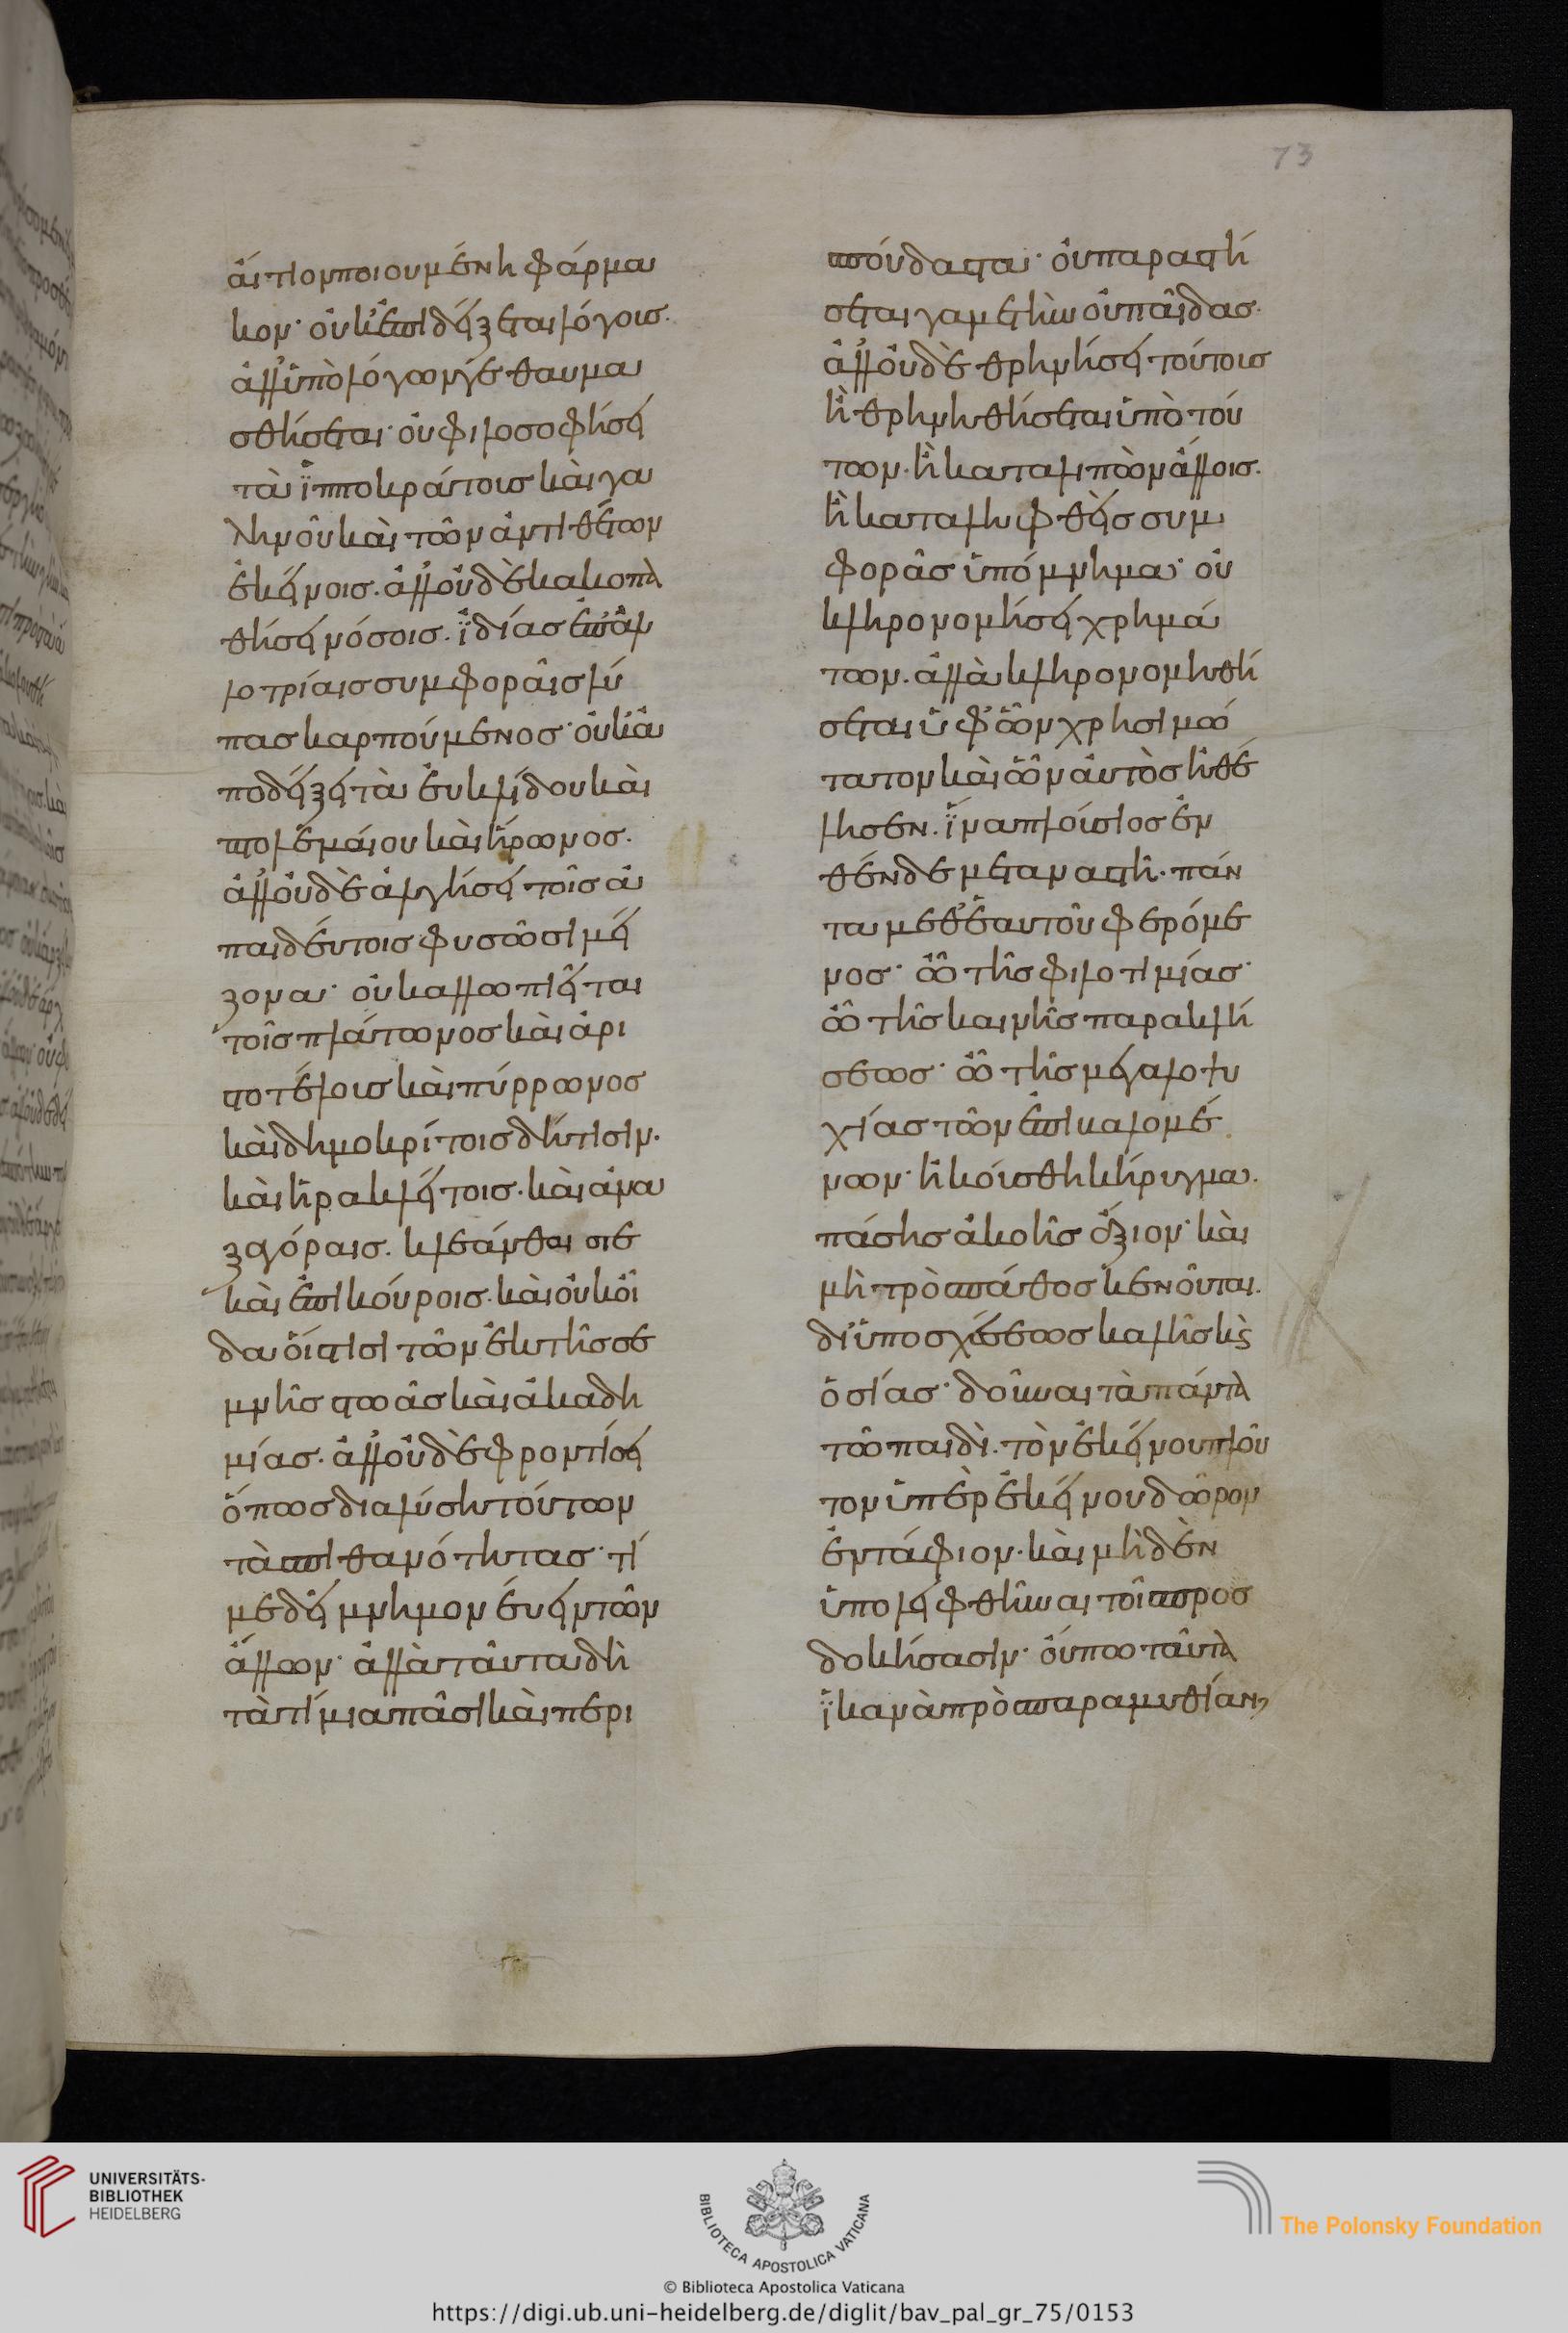 73
ἄιτιον ποιουμένη φάρμα
κον· οὐκ ἐπιδείξεται λόγοις.
ἀλλ' ὑπὸ λόγων γε θαυμα
σθήσεται· οὐ φιλοσοφήσει
τὰ ἱπποκράτους καὶ γα
ληνοῦ καὶ τῶν ἀντιθέτων
ἐκείνοις. ἀλλ' οὐδὲ κακοπα
θήσει νόσοις. ἰδίας ἐπ' ἀλ
λοτρίαις συμφοραῖς λύ
πας καρπούμενος· οὐκ ἀ
ποδείξει τὰ ἐυκλίδου καὶ
πτολεμαίου καὶ ἥρωνος.
ἀλλ' οὐδὲ ἀλγήσει τοῖς ἀ
παιδέυτοις φυσῶσι μεί
ζονα· οὐ καλλωπιεῖται
τοῖς πλάτωνος καὶ ἀρι
στοτέλοις καὶ πύρρωνος
καὶ δημοκρίτοις δήτισιν.
καὶ ἡρακλείτοις. καὶ ἀνα
ξαγόραις. κλεάνθαι στε
καὶ ἐπικούροις. καὶ οὐκ οἶ
δα οἵστισι τῶν ἐκ τῆς σε
μνῆς στωᾶς καὶ ἀκαδη
μίας. ἀλλ' οὐδὲ φροντίσει
ὅπως διαλύσῃ τούτων
τὰς πιθανότητας· τί
με δεῖ μνημονέυειν τῶν
ἄλλων· ἀλλὰ ταῦτα δὴ
τὰ τίμια πᾶσι καὶ περι
σπούδαστα· οὐ παραστή
σεται γαμετὴν οὐ παῖδας·
ἀλλ' οὐδὲ θρηνήσει τούτους
ἢ θρηνηθήσεται ὑπὸ τού
των. ἢ καταλιπὼν ἄλλοις.
ἢ καταλειφθεὶς συμ
φορᾶς ὑπόμνημα· οὐ
κληρονομήσει χρημά
των. ἀλλὰ κληρονομηθή
σεται ὑφ' ὧν χρησιμώ
τατον καὶ ὧν ἀυτὸς ἠθέ
λησεν. ἵνα πλούσιος ἐν
θένδε μεταναστῇ. πάν
τα μεθ' ἑαυτοῦ φερόμε
νος· ὢ τῆς φιλοτιμίας·
ὢ τῆς καινῆς παρακλή
σεως· ὢ τῆς μεγαλοψυ
χίας τῶν ἐπικαλομέ
νων· ἠκούσθη κήρυγμα.
πάσης ἀκοῆς ἄξιον· καὶ
μητρὸς πάθος κενοῦται.
δι' ὑποσχέσεως καλῆς κ(αὶ)
ὁσίας· δοῦναι τὰ πάντα
τῶ παιδὶ. τὸν ἐκείνου πλοῦ
τον ὑπὲρ ἐκείνου δῶρον
ἐντάφιον. καὶ μηδὲν
ὑπολειφθῆναι τοῖς προσ
δοκήσασιν· οὔπω ταῦτα
ἱκανὰ πρὸς παραμυθίαν,
UNIVERSITÄTS-
BIBLIOTHEK
HEIDELBERG
BIBLIOTECA APOSTOLICA VATICANA
The Polonsky Foundation
© Biblioteca Apostolica Vaticana
https://digi.ub.uni-heidelberg.de/diglit/bav_pal_gr_75/0153